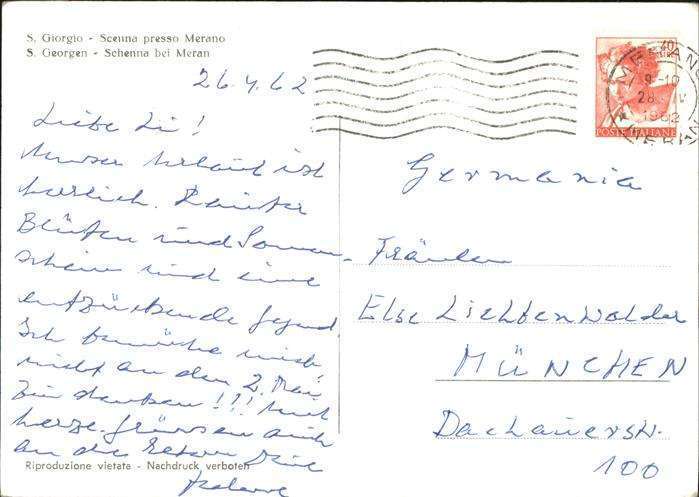 S. Giorgio - Scenna presso Merano
S. Georgen - Schenna bei Meran
26.4.62
Liebe Li!
Unser Urlaub ist
herrlich. Lauter
Blüten und Sonnen-
schein und eine
entzückende Gegend.
Ich bemühe mich
nicht an den 2. Mai
zu denken!!! Mit
herzl. Grüssen auch
an die Eltern Deine
Riproduzione vietata - Nachdruck verboten
MERANO
9-10
28 IV
1962
POSTE ITALIANE
Germania
Fräulein
Else Lichtenwalder
MÜNCHEN
Dachauerstr.
100